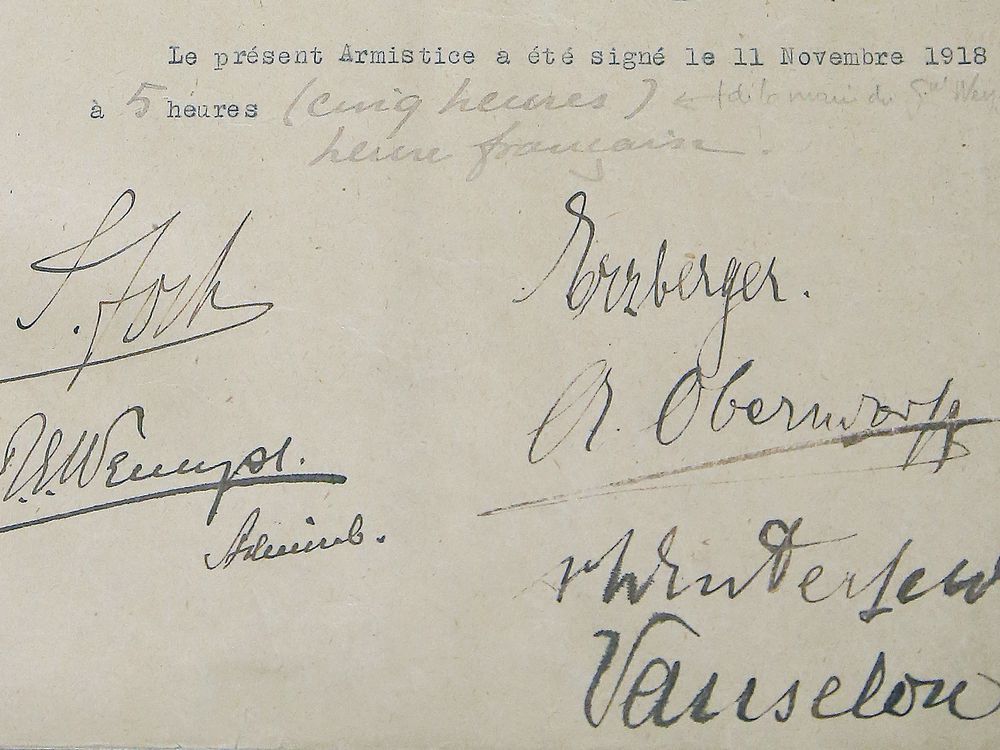 Le présent Armistice a été signé le 11 Novembre 1918
à 5 heures (cinq heures) ← de la main du Gal Wey
heure française.
F. Foch
Erzberger.
A. Oberndorff
R. E. Wemyss.
Admiral.
v Winterfeld
Vanselow